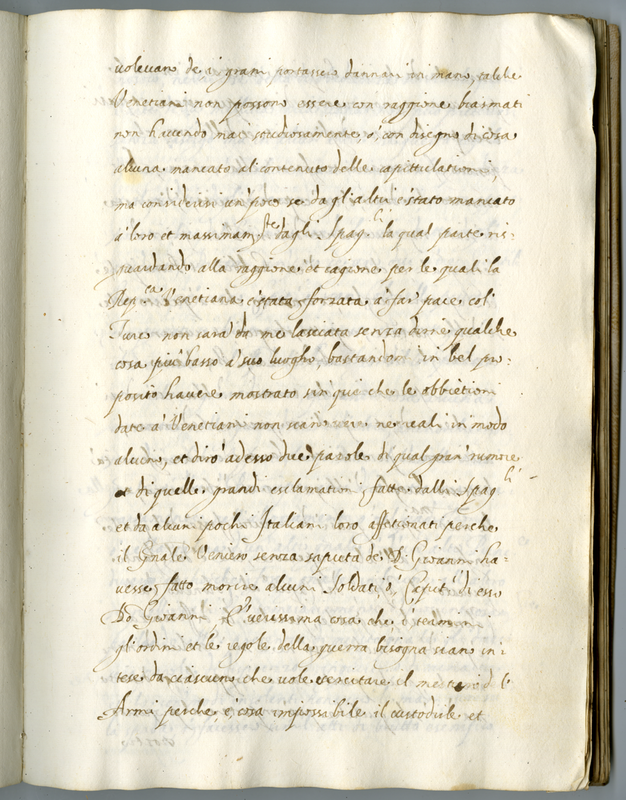 volevano de i grani portassero dannari in mano, talche
Venetiani non possono essere con raggione biasmati
non havendo mai studiosamente, ò, con disegno di cosa
alcuna mancato al contenuto delle capittulationi,
ma considerisi un poco se dagli altri è stato mancato
à loro et massimam.te dagli Spag.li la qual parte ris-
guardando alla raggione et cagione per le quali la
Rep.ca Venetiana è stata forzata à far pace col
Turco non sara da me lasciata senza dirne qualche
cosa più basso à suo luogho, bastandomi in bel pro-
posito havere mostrato sin qui che le obbiettioni
date à Venetiani non sian vere ne reali in modo
alcuno, et dirò adesso due parole di qual gran rumore
et di quelle grandi esclamationi fatte dalli Spag.li
et da alcuni pochi Italiani loro affettionati perche
il Gñale Veniero senza saputa de D. Giovanni ha-
vesse fatto morire alcuni soldati ò Capit.i di esso
Dō Giovanni verissima cosa che
gl'ordini et le regole della guerra bisogna siano in-
tese da ciascuno che vole essercitare il mestiero del
Armi perche è cosa impossibile il custodirle et